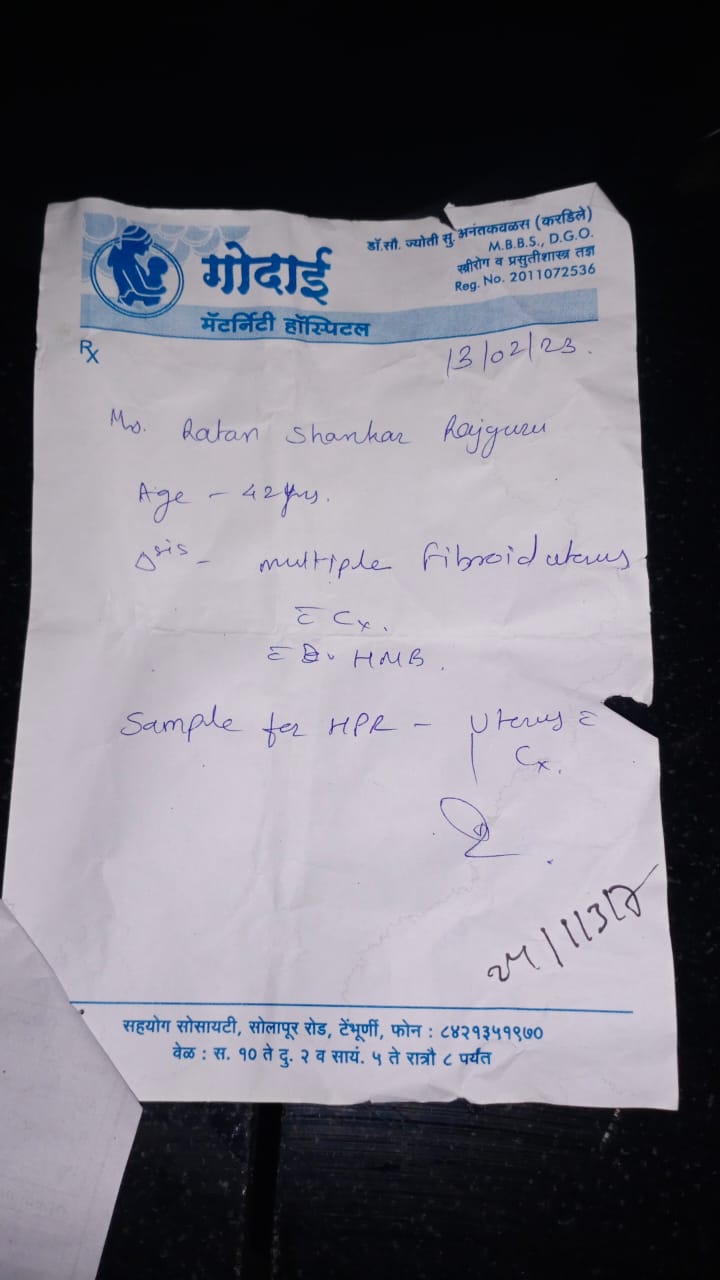 गोदाई
मॅटर्निटी हॉस्पिटल
डॉ.सौ. ज्योती सु. अनंतकवळस (करडिले)
M.B.B.S., D.G.O.
स्त्रीरोग व प्रसुतीशास्त्र तज्ञ
Reg. No. 2011072536
Rx
13/02/23.
Ratan Shankar Rajguru
Age - 42yrs.
multiple fibroid uterus
Cx.
HMB.
Sample for HPR - Uterus
Cx.
सहयोग सोसायटी, सोलापूर रोड, टेंभूर्णी, फोन : ८४२१३५१९७०
वेळ : स. १० ते दु. २ व सायं. ५ ते रात्रौ ८ पर्यंत